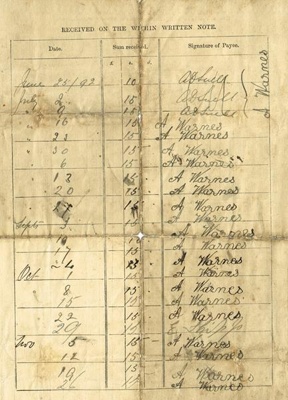 RECEIVED ON THE WITHIN WRITTEN NOTE.
Date. Sum received. Signature of Payee.
£ s. d.
June 25/92 10
July 2 15
15
16 15 A Warnes
23 15 A Warnes
30 15 A Warnes
6 15 A Warnes
13 15 A Warnes
20 15 A Warnes
27 15 A Warnes
Sept 3 15 A Warnes
10 15 A Warnes
17 15 A Warnes
24 15 A Warnes
Oct 1 15 A Warnes
8 15 A Warnes
15 15 A Warnes
22 15 A Warnes
29 15
Nov 5 15 A Warnes
12 15 A Warnes
19 15 A Warnes
26 15 A Warnes
A Warnes